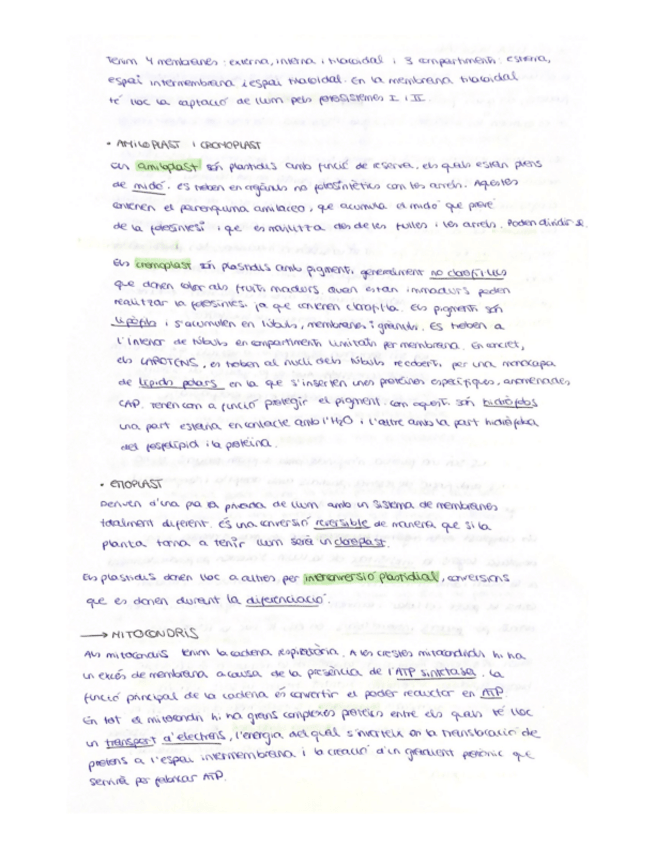 Tenim 4 membranes: externa, interna i tilacoidal i 3 compartiments: estroma,
espai intermembrana i espai tilacoidal. En la membrana tilacoidal
té lloc la captació de llum pels fotosistemes I i II.
• AMILOPLAST I CROMOPLAST
Els amiloplast són plastidis amb funció de reserva, els quals estan plens
de midó. Es troben en orgànuls no fotosintètics com les arrels. Aquestes
contenen el parènquima amilaceo, que acumula el midó que prové
de la fotosíntesi i que es mobilitza des de les fulles i les arrels. Poden dividir-se.
Els cromoplast són plastidis amb pigments, generalment no clorofíl·lics
que donen color als fruits madurs. Quan estan immadurs poden
realitzar la fotosíntesi, ja que contenen clorofil·la. Els pigments són
lipòfils i s'acumulen en túbuls, membranes i grànuls. Es troben a
l'interior de túbuls en compartiments limitats per membrana. En concret,
els CAROTENS, es troben al nucli dels túbuls recoberts per una monocapa
de lípids polars en la que s'insereixen unes proteïnes específiques, anomenades
CAP. Tenen com a funció protegir el pigment. Com aquests són hidròfobs
una part estarà en contacte amb l'H2O i l'altre amb la part hidròfoba
del fosfolípid i la proteïna.
• ETIOPLAST
Deriven d'una planta privada de llum amb un sistema de membranes
totalment diferent. És una conversió reversible de manera que si la
planta torna a tenir llum serà un cloroplast.
Els plastidis donen lloc a altres per interconversió plastidial, conversions
que es donen durant la diferenciació.
→ MITOCONDRIS
Als mitocondris tenim la cadena respiratòria. A les crestes mitocondrials hi ha
un excés de membrana a causa de la presència de l'ATP sintetasa. La
funció principal de la cadena és convertir el poder reductor en ATP.
En tot el mitocondri hi ha grans complexos proteics entre els quals té lloc
un transport d'electrons, l'energia del qual s'inverteix en la translocació de
protons a l'espai intermembrana i la creació d'un gradient protònic que
servirà per fabricar ATP.